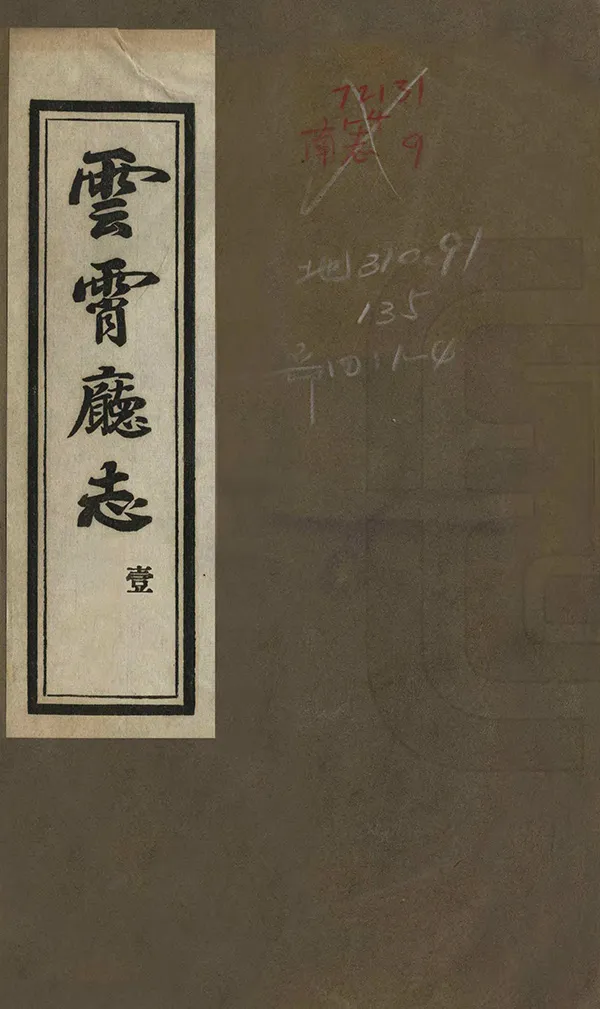 雲霄廳志
壹
72131
南志 9
地310.91
135
1-4